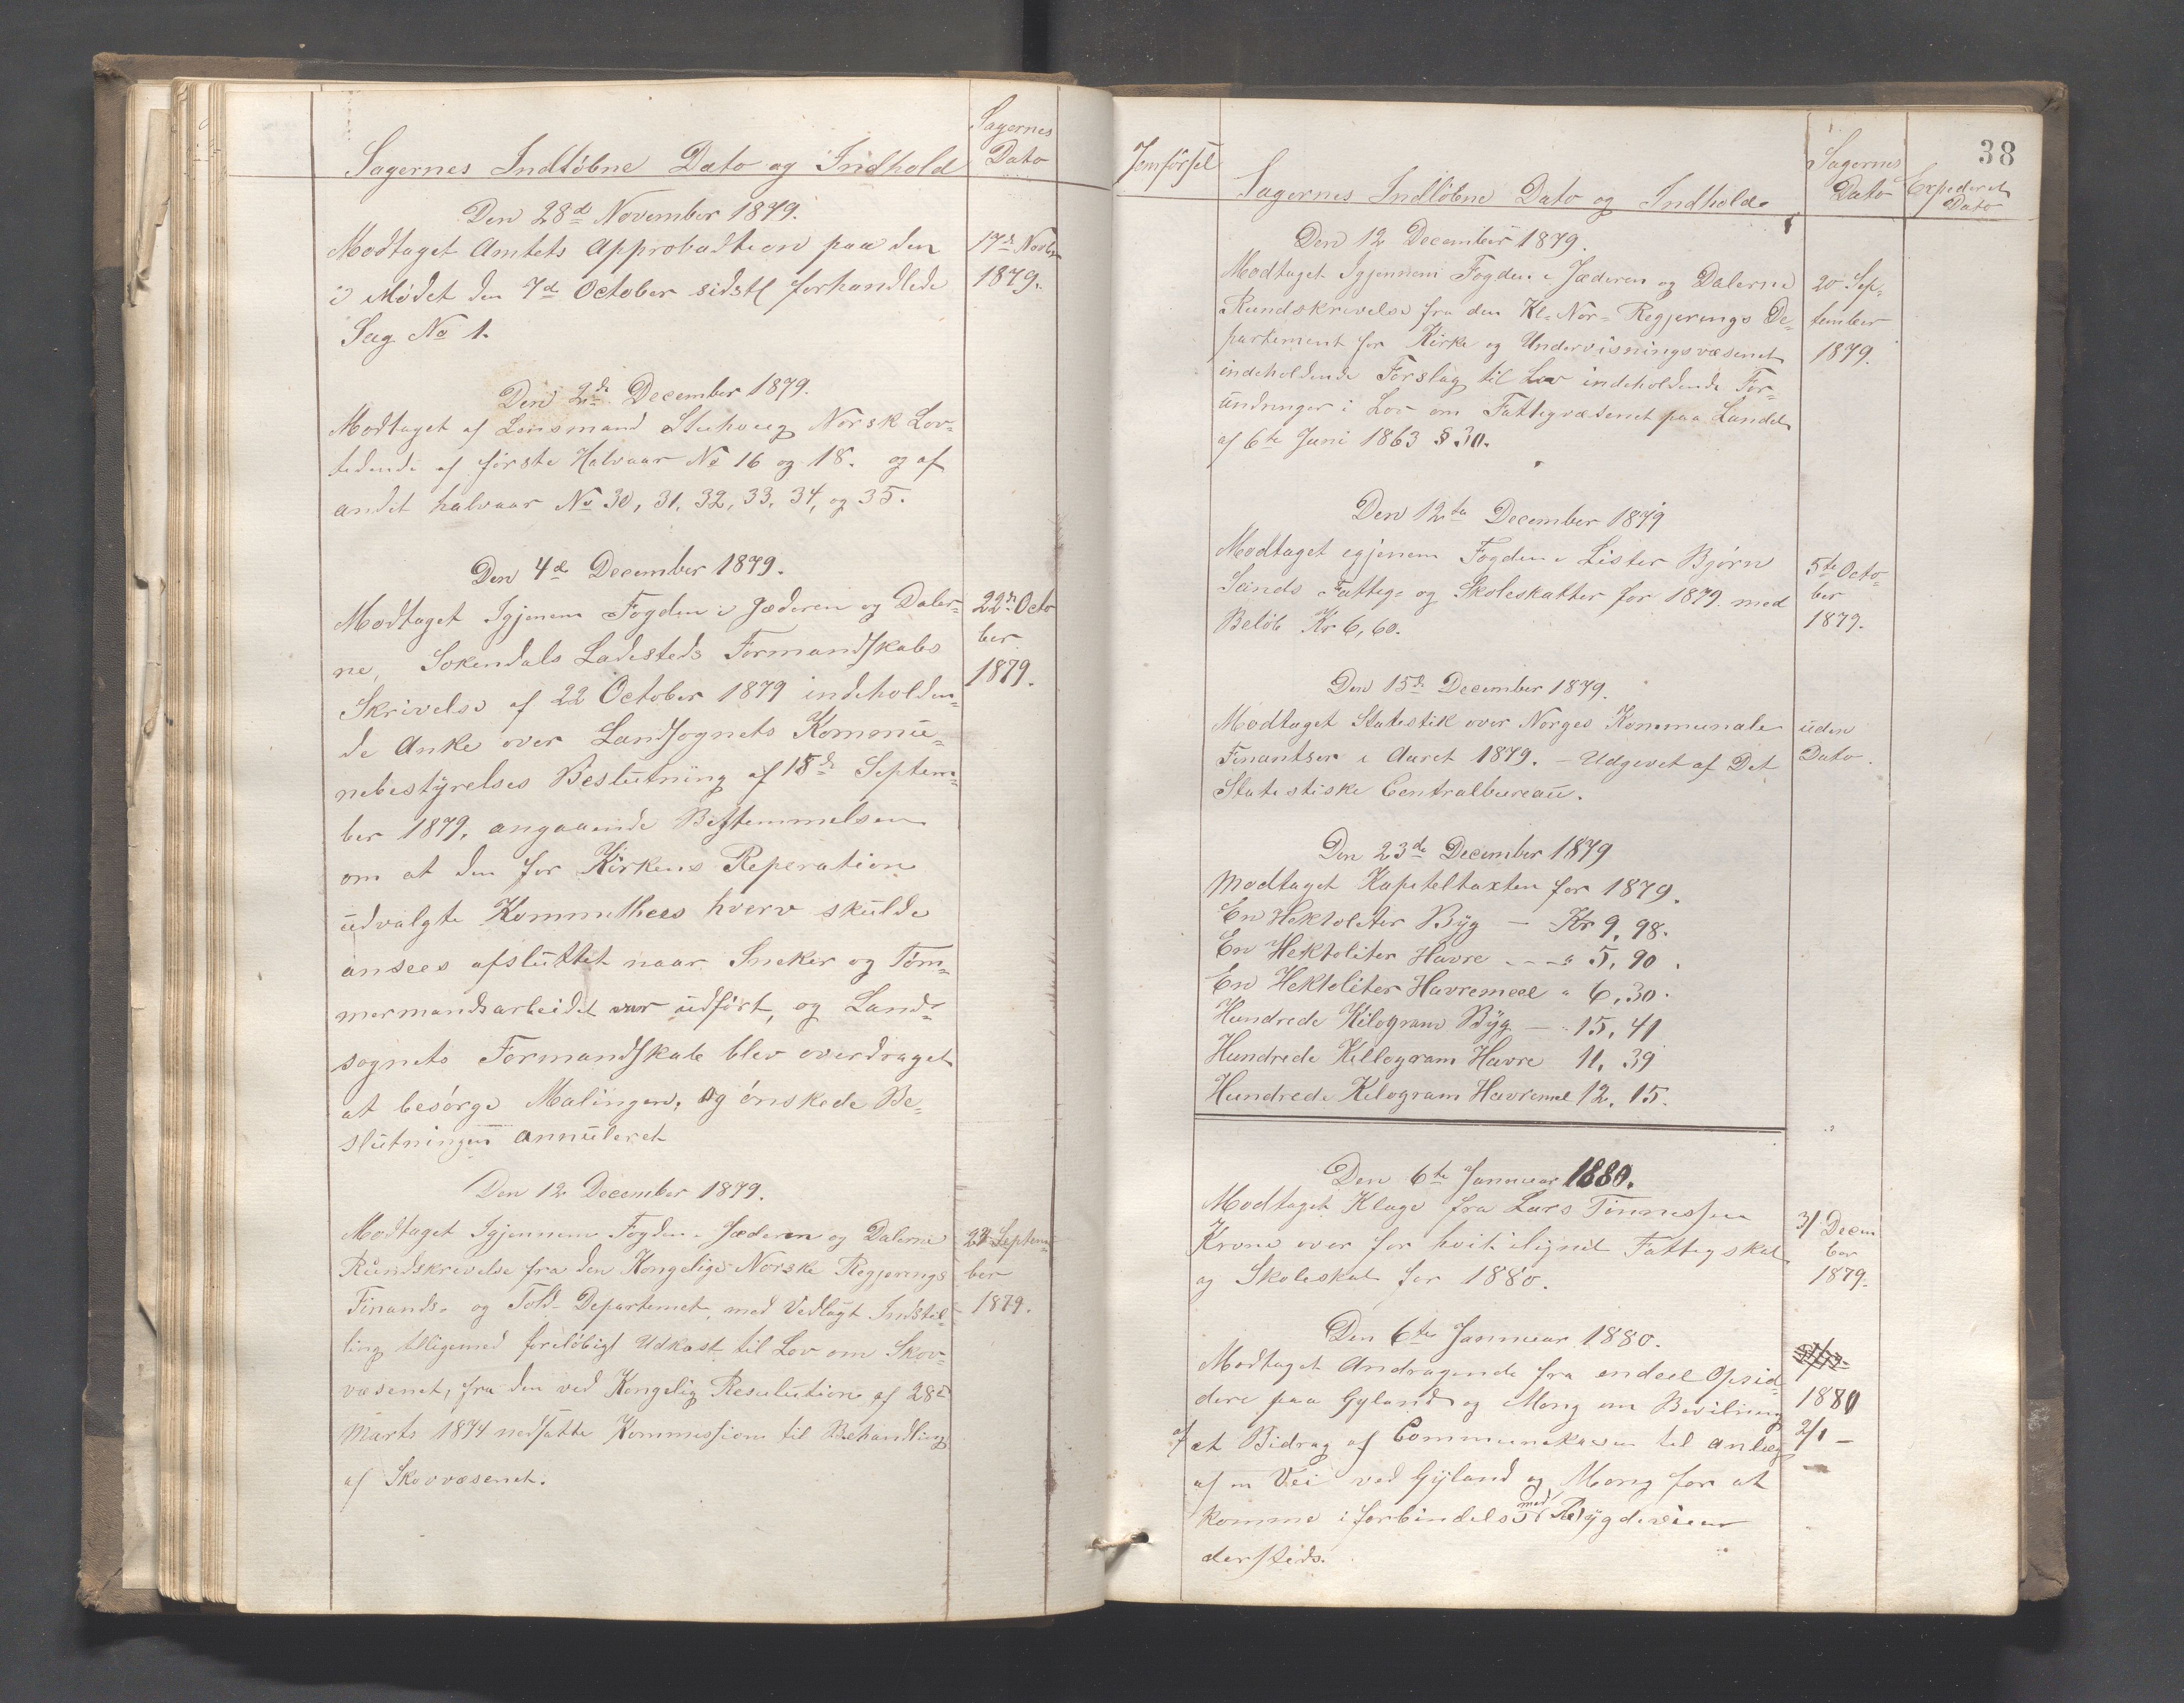 Sagernes Indløbne Dato og Indhold
Sagernes
Dato
Den 28de November 1879.
Modtaget Amtets Approbadtion paa den
i Mødet den 7de October sidstl forhandlede
Sag No 1.
17de Novbr
1879.
Den 2den December 1879.
Modtaget af Lensmand Norsk Lov-
tidende af første Halvaar No 16 og 18. og af
andet halvaar No 30, 31, 32, 33, 34, og 35.
Den 4de December 1879.
Modtaget Igjenem Fogden i Jæderen og Daler-
ne, Sokendals Ladesteds Formandskabs
Skrivelse af 22 October 1879 indeholden-
de Anke over Landsognets Kommu-
nebestyrelses Beslutning af 18de Septem-
ber 1879, angaaende Bestemmelsen
om at den for Kirkens Reperation
udvalgte Kommithees hverv skulde
ansees afsluttet naar Sneker og Tøm-
mermandsarbeidet var udført, og Land-
sognets Formandskab blev overdraget
at besørge Malingen, og ønskede Be-
slutningen annuleret
22de Octo
ber
1879.
Den 12 December 1879.
Modtaget Igjennem Fogden i Jæderen og Dalerne
Rundskrivelse fra den Kongelige Norske Regjerings
Finands- og Told- Departemet, med Vedlagt Indstil-
ling tilligemed foreløbigt Udkast til Lov om Skov-
væsenet, fra den ved Kongelig Resulution af 28de
Marts 1874 nedsatte Kommission til Behandling
af Skovvæsenet.
23 Septem-
ber
1879.
38
Jemførsel
Sagernes Indløbne Dato og Indhold.
Sagernes
Dato
Expederet
Dato
Den 12 December 1879.
Modtaget Igjennem Fogden i Jæderen og Dalerne
Rundskrivelse fra den Kl- Nor- Regjerings De-
partement for Kirke og Undervisningsvæsenet
indeholdende Forslag til Lov indeholdende For-
undringer i Lov om Fattigvæsenet paa Landet
af 6te Juni 1863 § 30.
20 Sep-
tember
1879.
Den 12te December 1879
Modtaget igjenem Fogden i Lister Bjørn
Sands Fattig- og Skoleskatter for 1879. med
Beløb Kr 6,60.
5te Octo-
ber
1879.
Den 15de December 1879.
Modtaget Statestik over Norges Kommunale
Finantser i Aaret 1879. - Udgivet af Det
Statestiske Centralbureau.
uden
Dato.
Den 23de December 1879
Modtaget Kapiteltaxten for 1879.
En Hektoliter Byg — Kr 9, 98.
En Hektoliter Havre - - - " 5, 90.
En Hektoliter Havremeel " 6,30.
Hundrede Kilogram Byg — " 15, 41
Hundrede Killogram Havre 11, 39
Hundrede Kilogram Havremel 12, 15.
Den 6te Januar 1880.
Modtaget Klage fra Lars Tønnessen
Krone over for høit ilignet Fattigskat
og Skoleskat for 1880.
31 Decem
ber
1879.
Den 6te Januar 1880.
Modtaget Andragende fra endeel Opsid-
dere paa Gyland og Mong om Bevilning
af et Bidrag af Communekassen til anlæg
af en Vei ved Gyland og Mong for at
komme i forbindelse med Bygdeveien
dersteds.
1880
2/1 -